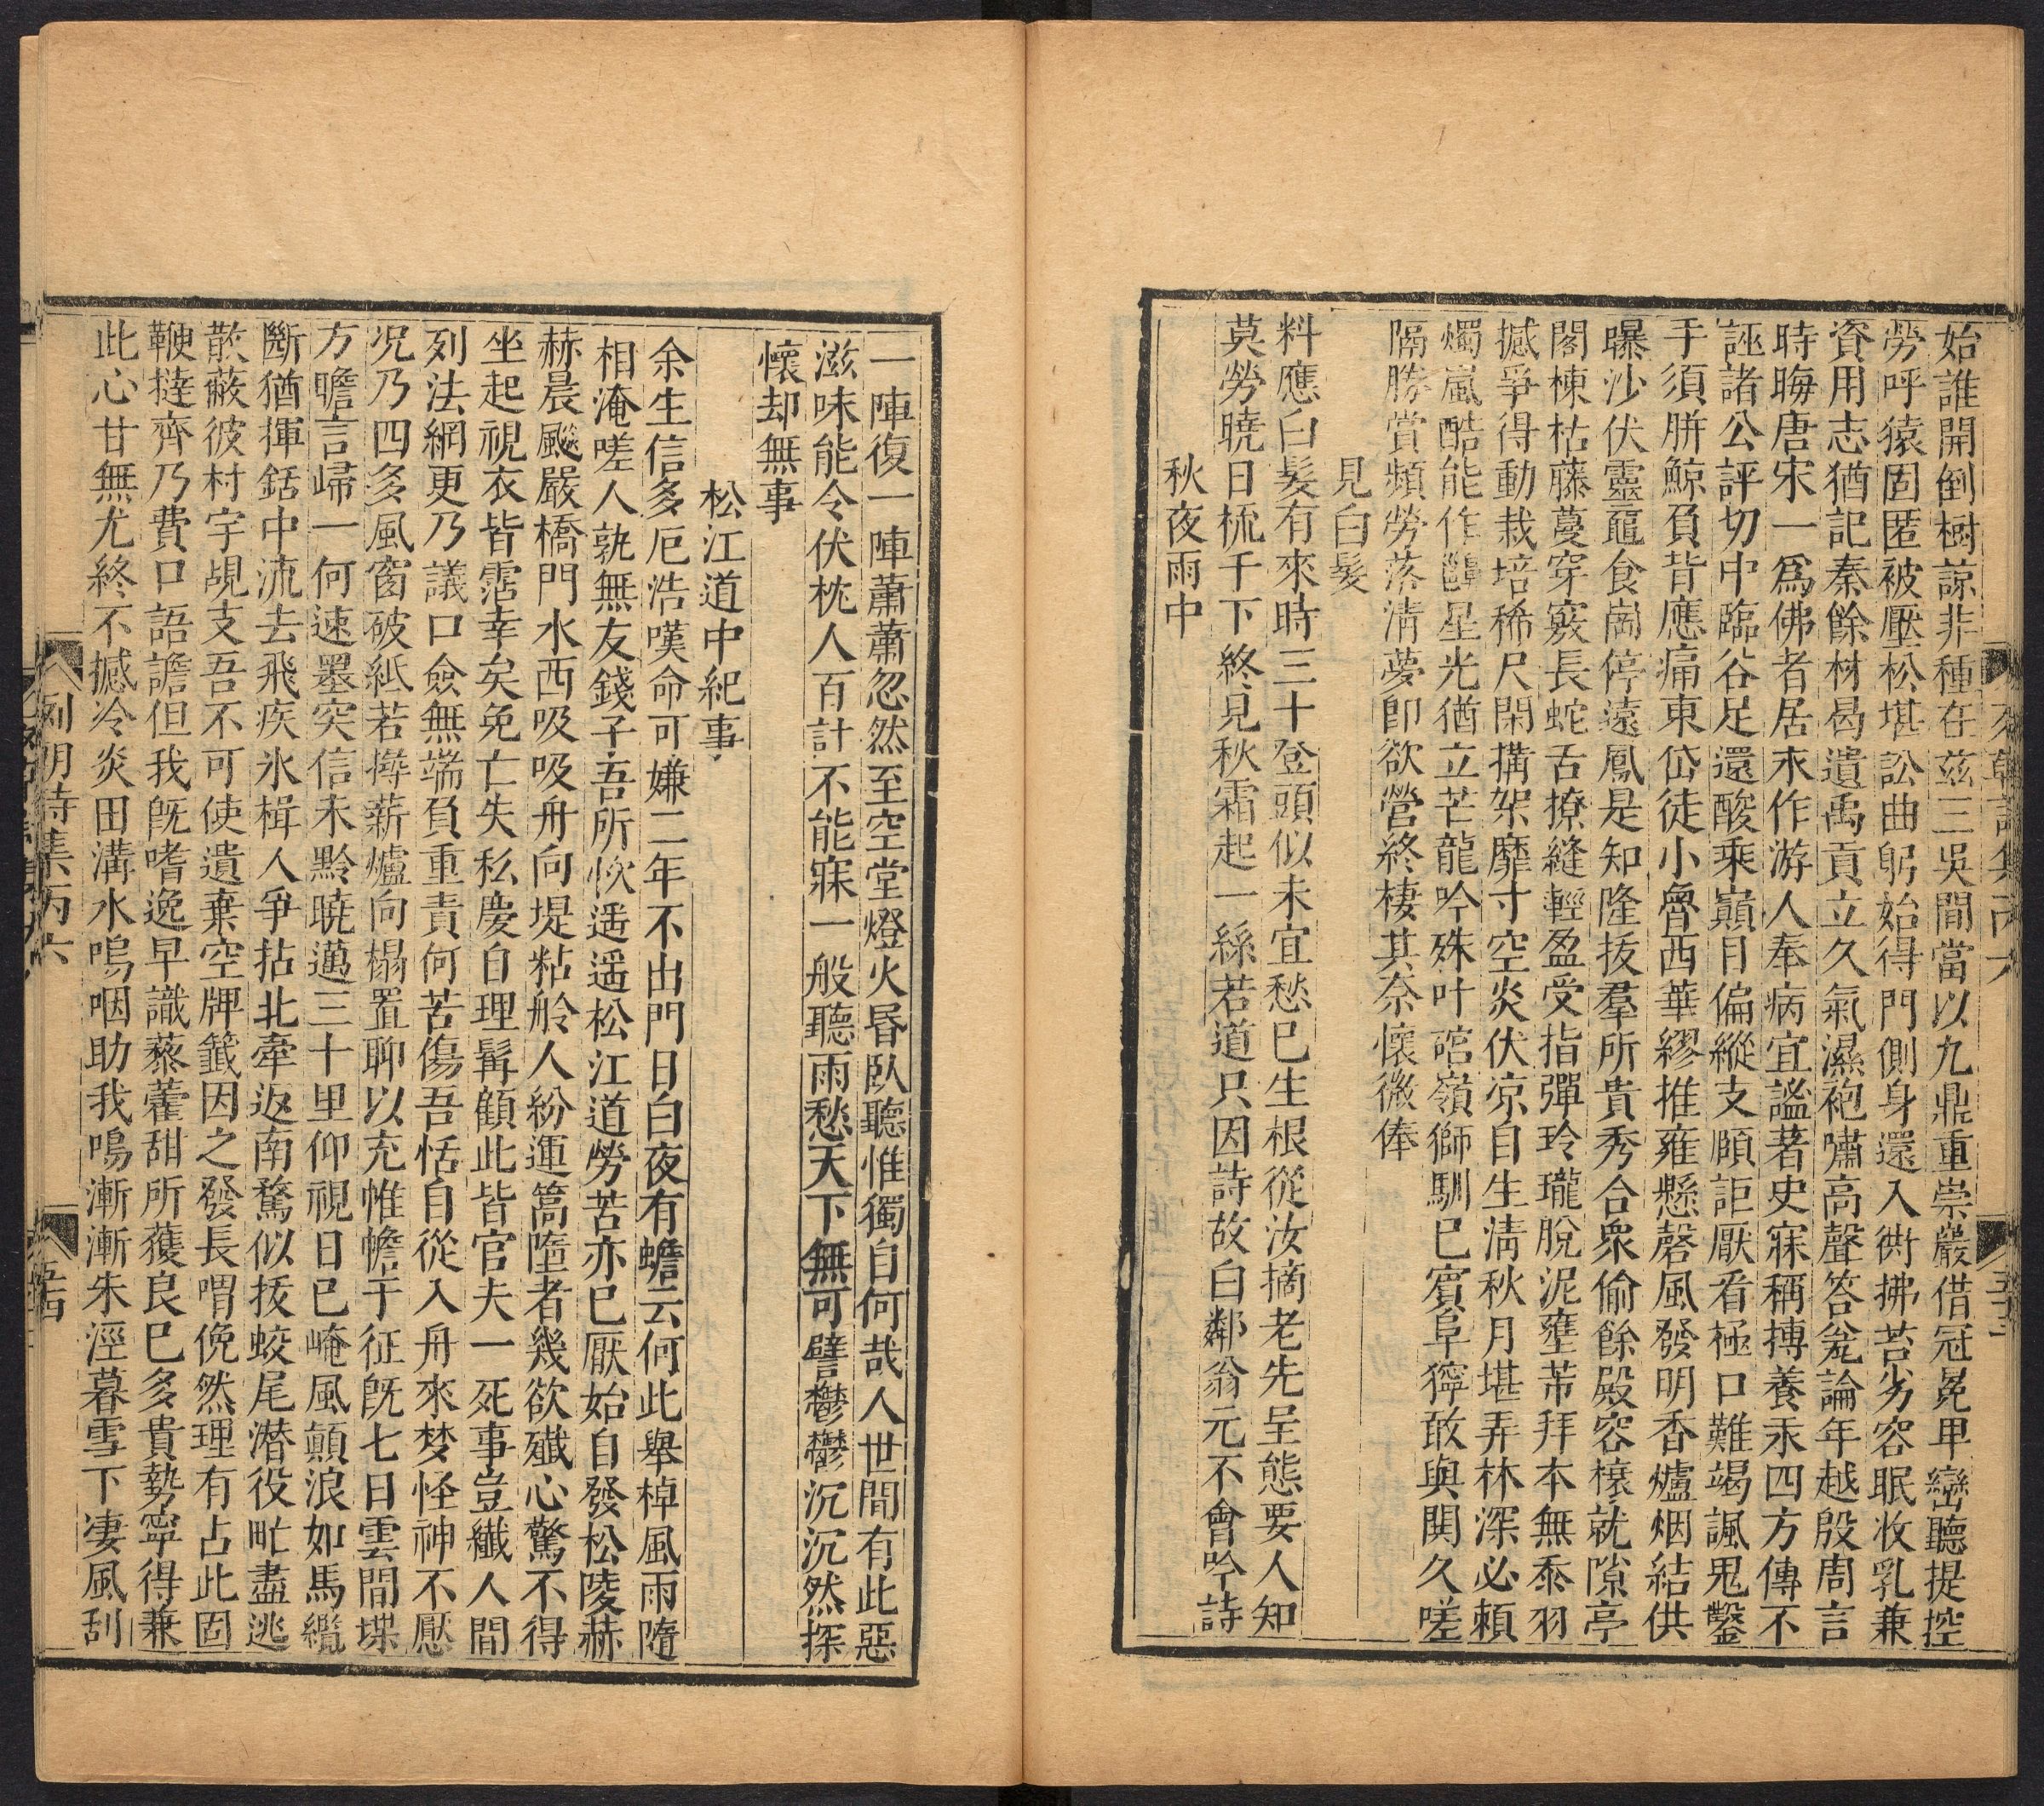 始誰開倒樹諒非種在茲三吳間當以九鼎重崇嚴借冠冕卑巒聽提控
勞呼猿固匿被壓松堪訟曲躬始得門側身還入衖拂苔劣容眠收乳兼
資用志猶記秦餘材曷遺禹貢立久氣濕袍嘯高聲答瓮論年越殷周言
時晦唐宋一爲佛者居永作游人奉病宜謐著史寐稱摶養汞四方傳不
誣諸公評切中臨谷足還酸乘巓目偏縱支頤詎厭看極口難竭諷鬼鑿
手須胼鯨負背應痛東岱徒小魯西華繆推雍懸磬風發明香爐烟結供
曝沙伏靈黿食崗停遠鳳是知隆拔羣所貴秀合衆偷餘殿容榱就隙亭
閣棟枯藤蔓穿竅長蛇舌撩縫輕盈受指彈玲瓏脫泥壅芾拜本無黍羽
撼爭得動栽培稀尺閑搆架靡寸空炎伏凉自生淸秋月堪弄林深必頼
燭嵐酷能作靆星光猶立芒龍吟殊叶硿嶺獅馴巳賓阜獰敢與閧久嗟
隔勝賞頻勞落淸夢卽欲營終棲其奈懷微俸
見白髮
料應白髮有來時三十登頭似未宜愁巳生根從汝摘老先呈態要人知
莫勞曉日梳千下終見秋霜起一絲若道只因詩故白鄰翁元不會吟詩
秋夜雨中
一陣復一陣蕭蕭忽然至空堂燈火昬臥聽惟獨自何哉人世間有此惡
滋味能令伏枕人百計不能寐一般聽雨愁天下無可譬鬱鬱沉沉然探
懷却無事
松江道中紀事
余生信多厄浩嘆命可嫌二年不出門日白夜有蟾云何此舉棹風雨隨
相淹嗟人孰無友錢子吾所忺遥遥松江道勞苦亦巳厭始自發松陵赫
赫晨颷嚴橋門水西吸吸舟向堤粘舲人紛運篙隋者幾欲殲心驚不得
坐起視衣皆霑幸矣免亡失私慶自理髯顧此皆官夫一死事豈纖人間
列法網更乃議口僉無端負重責何苦傷吾恬自從入舟來梦怪神不壓
况乃四多風窗破紙若撏薪爐向榻置聊以充帷幨于征旣七日雲間堞
方瞻言歸一何速墨突信未黔曉邁三十里仰視日已崦風顛浪如馬纜
斷猶揮銛中流去飛疾氷楫人爭拈北牽返南騖似拔蛟尾潛役甿盡逃
散蔽彼村宇覘支吾不可使遺棄空牌籤因之發長喟俛然理有占此固
鞭撻齊乃費口語譫但我旣嗜逸早識藜藿甜所獲良巳多貴勢寧得兼
此心甘無尤終不撼冷炎田溝水嗚咽助我鳴漸漸朱涇暮雪下凄風刮
列朝詩集丙六
五十四